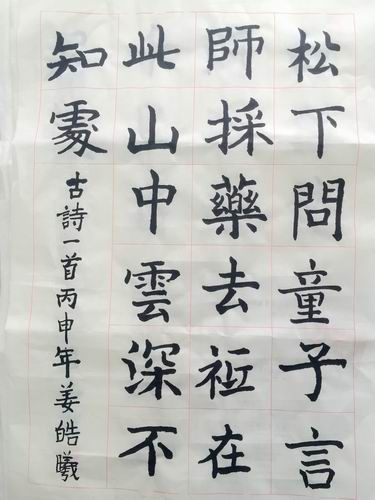 松下問童子言
師採藥去祗在
此山中雲深不
知處
古詩一首丙申年姜皓曦